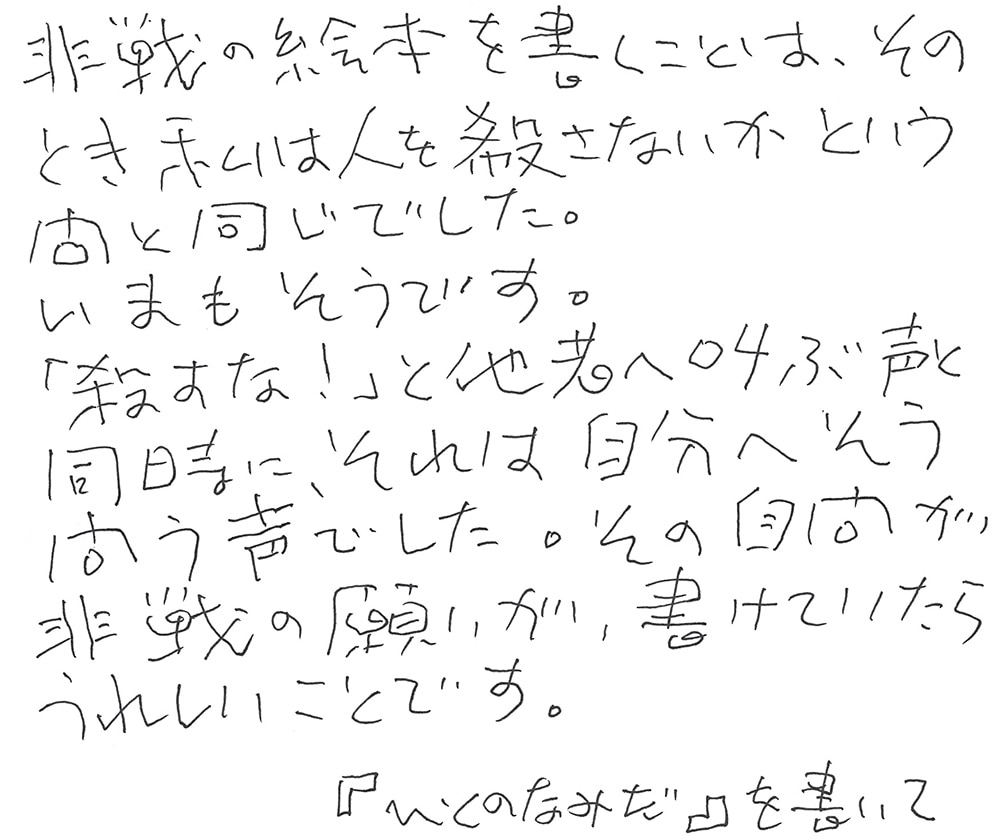 非戦の絵本を書くことは、その
とき私は人を殺さないかという
問と同じでした。
いまもそうです。
「殺すな!」と他者へ叫ぶ声と
同時に、それは自分へそう
問う声でした。その自問が、
非戦の願いが、書けていたら
うれしいことです。
『いくのなみだ』を書いて